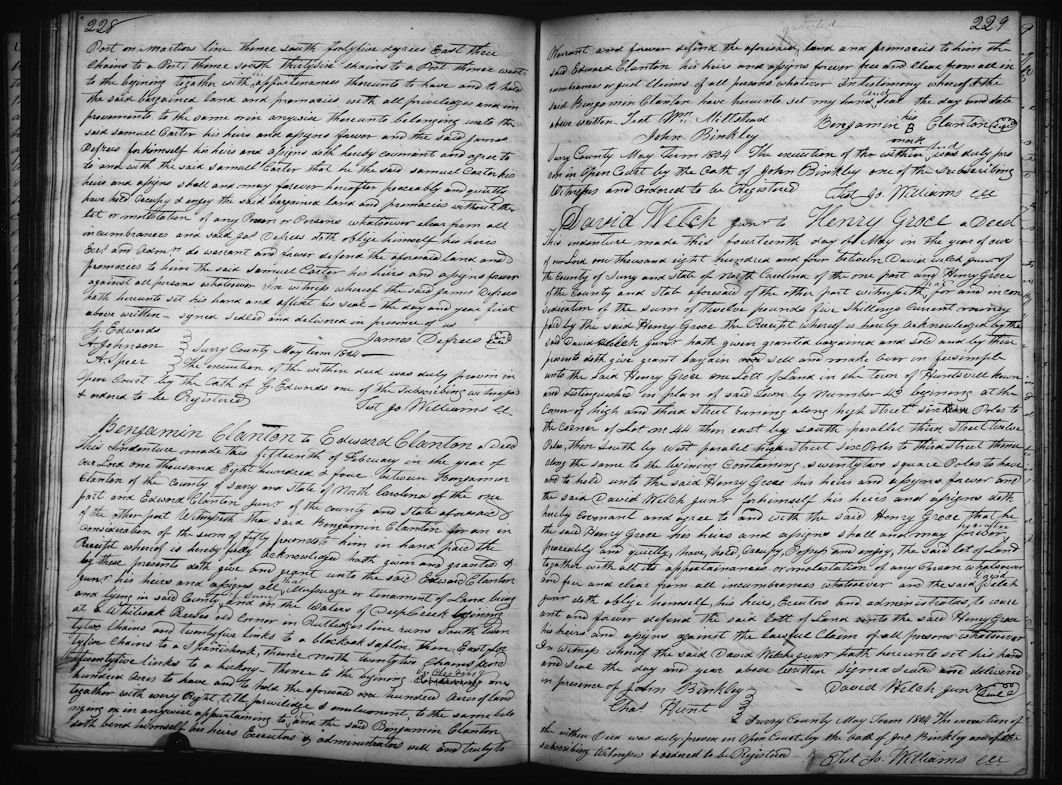 228
Post on martins line thence south fortyfive degrees East three
chains to a Post, thence south thirtyfive chains to a Post thence west
to the begining together with the appertenances thereunto to have and to hold
the said bargained land and premacies with all priviledges and im
provements to the same or in anywise thereunto belonging unto the
said samuel Carter his heirs and assigns forever and the said James
Defrees for himself his heirs and assigns doth hereby covenant and agree to
to and with the said samuel Carter that he the said samuel Carter his
heirs and assigns shall and may forever hereafter peaceably and quietly
have hold occupy & enjoy the said bargained land and premacies without the
let or molestation of any Person or Persons whatsoever clear from all
incumbrances and said Jas Defrees doth oblige himself his heirs
Exrs and Admrs do warrant and forever defend the aforesaid land and
premacies to him the said Samuel Carter his heirs and assigns forever
against all persons whatsoever In witness whereof the said James Defrees
hath hereunto set his hand and affixt his seal the day and year first
above written - signed sealed and delivered in presence of us
G. Edwards James Defrees seal
A Johnson Surry County May term 1804
A. Speer The execution of the within deed was duly proven in
Open Court by the Oath of G. Edwards one of the subscribing witnesses
& ordered to be Registered Test Jo. Williams CC
Benjamin Clanton to Edward Clanton a Deed
This Indenture made this fifteenth of February in the year of
Our Lord one thousand Eight hundred & four between Benjamin
Clanton of the County of surry and State of North Carolina of the one
part and Edward Clanton junr. of the county and State aforesaid
of the other part Witnesseth that said Benjamin Clanton for an in
Consideration of the sum of fifty pounds to him in hand paid the
Receipt whereof is hereby fully acknowledged hath given and granted &
by these presents doth give and grant unto the said Edward Clanton
junr his heirs and assigns all that Messuage or tenament of Land being
and lying in said County of Surry and on the Waters of Deep Creek begining
at a Whiteoak Reeses old Corner in Rutledges line runs South twen
tytwo Chains and twentyfive links to a blackoak saplin then East for
tyfive Chains to a Spanishoak, thence north twentytwo Chains and
twentyfive links to a hickory - thence to the begining containing one
hundred acres to have and to hold the aforesaid one hundred Acres of land
together with every Right title, priviledge & emolument, to the same belo
nging or in anywise appertaining to, and the said Benjamin Clanton
doth bind himself his heirs Executors & administrators well and truly to
229
granted
Warrant and forever defend the aforesaid land and premacies to him the
said Edward Clanton his heirs and assigns forever free and clear from all in
cumbrances or just Claims of all persons whatever In testimony whereof I the
said Benjamin Clanton have hereunto set my hand and seal the day and date
above written Test Wm. Milstead Benjamin his B mark Clanton seal
John Binkley
Surry County May Term 1804 The execution of the within deed was duly pro
ven in Open Court by the Oath of John Binkley one of the subscribing
Witnesses and ordered to be Registered Test Jo. Williams CC
David Welch junr to Henry Groce a Deed
This indenture made this fourteenth day of May in the year of our
Lord one thousand eight hundred and four between David welch junr of
the County of Surry and State of North Carolina of the one part and Henry Groce
of the County and State aforesaid of the other part witnesseth, that for and in con
sideration of the sum of twelve pounds five shillings current money
paid by the said Henry Groce the Receipt whereof is hereby acknowledged by the
said David welch junr hath given granted bargained and sold and by these
presents doth give grant bargain and sell and make over in feesimple
unto the said Henry Groce one Lott of Land in the town of Huntsvill known
and distinguished in plan of said town by Number 43 begining at the
Corner of high and third Street runing along high Street six Poles to
the corner of Lot no. 44 then east by south parallel third Street twelve
Poles, then South by west paralel high street six Poles to third Street thence
along the same to the begining Containing seventytwo square Poles to have
and to hold unto the said Henry Groce his heirs and assigns forever and
the said David Welch junr for himself his heirs and assigns doth
hereby Covenant and agree to and with the said Henry Groce that he
the said Henry Groce his heirs and assigns shall and may forever hereafter
peaceably and quietly, have, hold, Occupy, Possess and enjoy, the said lot of Land
together with all its appertainances or molestation of any Person whatsoever
and free and clear from all incumbrances whatsoever and the said David Welch
junr doth oblige himself, his heirs, Executors and administrators, to warr
ant and forever defend the said lott of Land unto the said Henry Groce
his heirs and assigns against the lawful Claim of all persons whatsoever
In witness whereof the said David Welch junr hath hereunto set his hand
and seal the day and year above written Signed Seald and delivered
in presence of John Binkley David Welch junr seal
Chas Hunt
Surry County May Term 1804 The execution of
the within Deed was duly proven in Open Court, by the Oath of Jno Binkley one of the
subscribing Witnesses & ordered to be Registered Test Jo. Williams CC